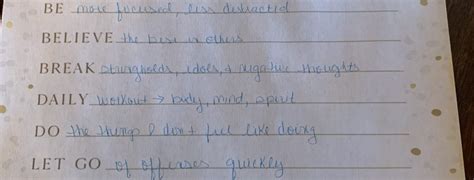 BE more focused, less distracted
BELIEVE the best in others
BREAK strongholds, idols, + negative thoughts
DAILY workout → body, mind, spirit
DO the things I don't feel like doing
LET GO of offenses quickly